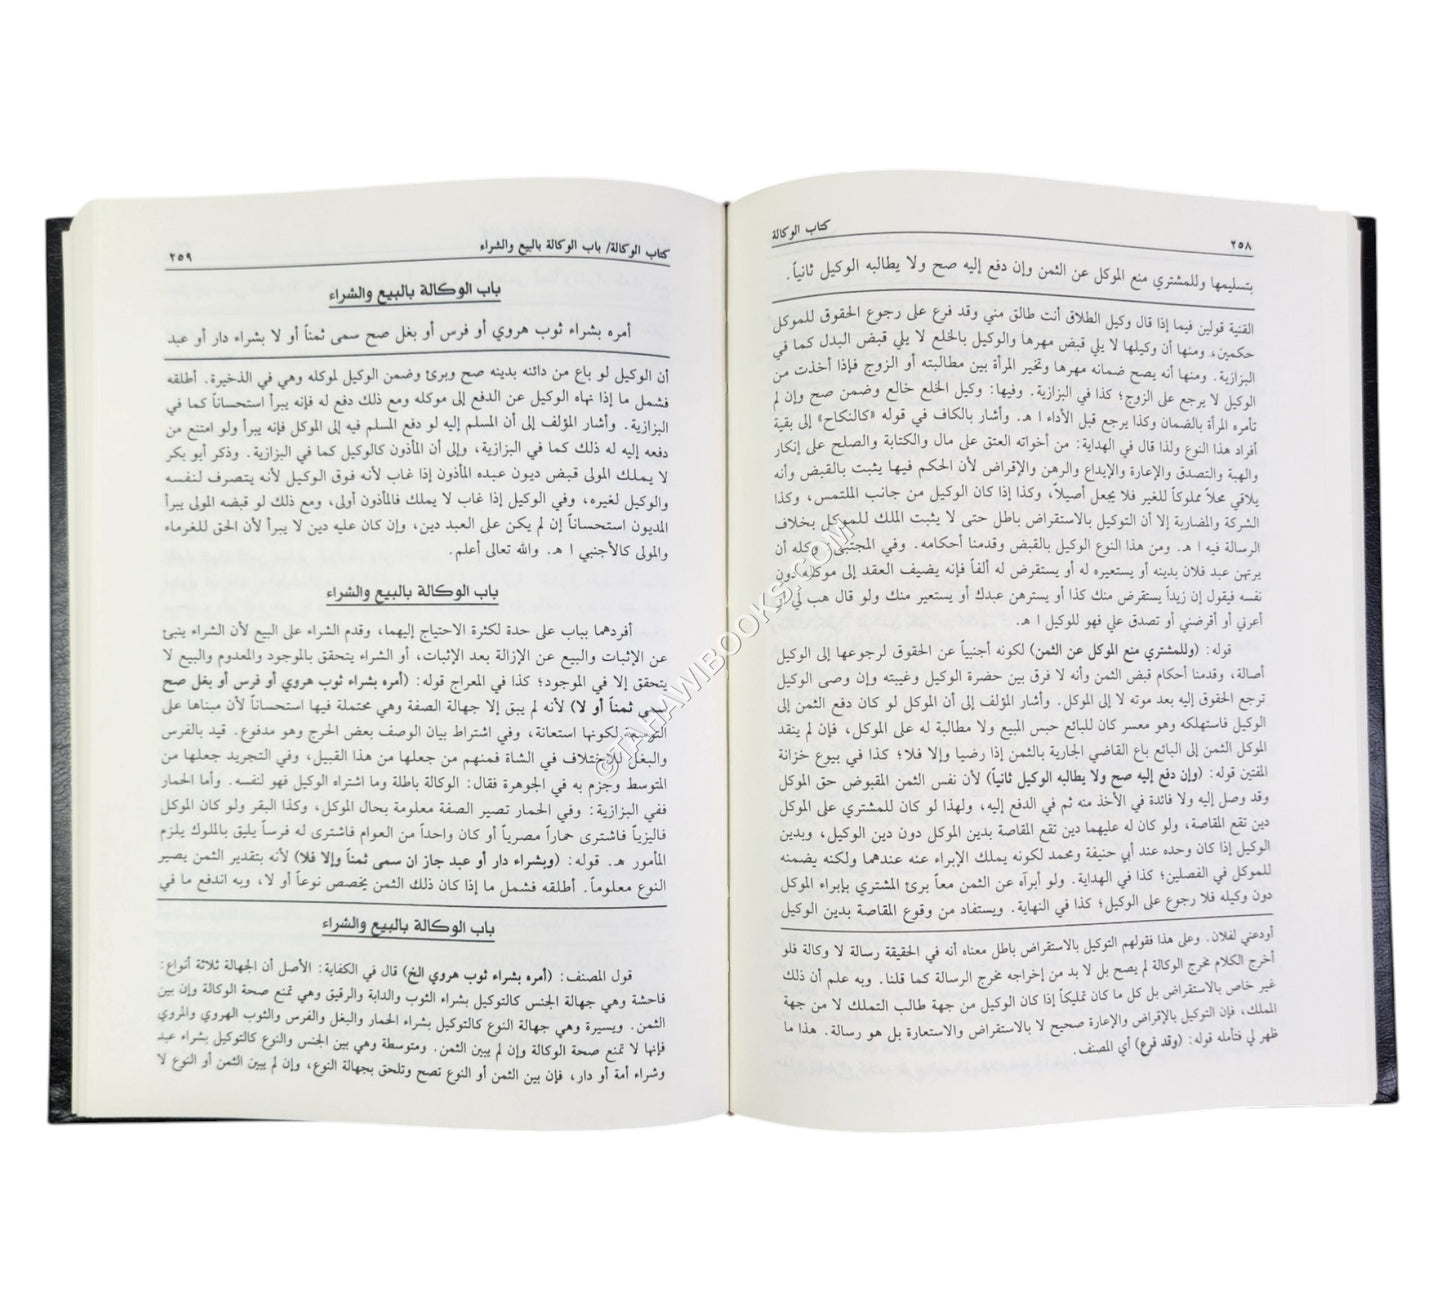 ٢٥٨
كتاب الوكالة
بتسليمها وللمشتري منع الموكل عن الثمن وإن دفع إليه صح ولا يطالبه الوكيل ثانياً.
القنية قولين فيما إذا قال وكيل الطلاق أنت طالق مني وقد فرع على رجوع الحقوق للموكل
حكمين، ومنها أن وكيلها لا يلي قبض مهرها والوكيل بالخلع لا يلي قبض البدل كما في
البزازية. ومنها أنه يصح ضمانه مهرها وتخير المرأة بين مطالبته أو الزوج فإذا أخذت من
الوكيل لا يرجع على الزوج؛ كذا في البزازية. وفيها: وكيل الخلع خالع وضمن صح وإن لم
تأمره المرأة بالضمان وكذا يرجع قبل الأداء ا هـ. وأشار بالكاف في قوله «كالنكاح» إلى بقية
أفراد هذا النوع ولذا قال في الهداية: من أخواته العتق على مال والكتابة والصلح على إنكار
والهبة والتصدق والإعارة والإيداع والرهن والإقراض لأن الحكم فيها يثبت بالقبض وأنه
يلاقي محلاً مملوكاً للغير فلا يجعل أصيلاً، وكذا إذا كان الوكيل من جانب الملتمس، وكذا
الشركة والمضاربة إلا أن التوكيل بالاستقراض باطل حتى لا يثبت الملك للموكل بخلاف
الرسالة فيه ا هـ. ومن هذا النوع الوكيل بالقبض وقدمنا أحكامه. وفي المجتبى: وكله أن
يرتهن عبد فلان بدينه أو يستعيره له أو يستقرض له ألفاً فإنه يضيف العقد إلى موكله دون
نفسه فيقول إن زيداً يستقرض منك كذا أو يسترهن عبدك أو يستعير منك ولو قال هب لي أو
أعرني أو أقرضني أو تصدق علي فهو للوكيل ا هـ.
قوله: (وللمشتري منع الموكل عن الثمن) لكونه أجنبياً عن الحقوق لرجوعها إلى الوكيل
أصالة، وقدمنا أحكام قبض الثمن وأنه لا فرق بين حضرة الوكيل وغيبته وإن وصى الوكيل
ترجع الحقوق إليه بعد موته لا إلى الموكل. وأشار المؤلف إلى أن الموكل لو كان دفع الثمن إلى
الوكيل فاستهلكه وهو معسر كان للبائع حبس المبيع ولا مطالبة له على الموكل، فإن لم ينقد
الموكل الثمن إلى البائع باع القاضي الجارية بالثمن إذا رضيا وإلا فلا؛ كذا في بيوع خزانة
المفتين قوله: (وإن دفع إليه صح ولا يطالبه الوكيل ثانياً) لأن نفس الثمن المقبوض حق الموكل
وقد وصل إليه ولا فائدة في الأخذ منه ثم في الدفع إليه، ولهذا لو كان للمشتري على الموكل
دين تقع المقاصة، ولو كان له عليهما دين تقع المقاصة بدين الموكل دون دين الوكيل، وبدين
الوكيل إذا كان وحده عند أبي حنيفة ومحمد لكونه يملك الإبراء عنه عندهما ولكنه يضمنه
للموكل في الفصلين؛ كذا في الهداية. ولو أبرآه عن الثمن معاً برئ المشتري بإبراء الموكل
دون وكيله فلا رجوع على الوكيل؛ كذا في النهاية. ويستفاد من وقوع المقاصة بدين الوكيل
أودعني لفلان. وعلى هذا فقولهم التوكيل بالاستقراض باطل معناه أنه في الحقيقة رسالة لا وكالة فلو
أخرج الكلام مخرج الوكالة لم يصح بل لا بد من إخراجه مخرج الرسالة كما قلنا. وبه علم أن ذلك
غير خاص بالاستقراض بل كل ما كان تمليكاً إذا كان الوكيل من جهة طالب التملك لا من جهة
المملك، فإن التوكيل بالإقراض والإعارة صحيح لا بالاستقراض والاستعارة بل هو رسالة. هذا ما
ظهر لي فتأمله قوله: (وقد فرع) أي المصنف.
كتاب الوكالة/ باب الوكالة بالبيع والشراء
٢٥٩
باب الوكالة بالبيع والشراء
أمره بشراء ثوب هروي أو فرس أو بغل صح سمى ثمناً أو لا بشراء دار أو عبد
أن الوكيل لو باع من دائنه بدينه صح وبرئ وضمن الوكيل لموكله وهي في الذخيرة. أطلقه
فشمل ما إذا نهاه الوكيل عن الدفع إلى موكله ومع ذلك دفع له فإنه يبرأ استحساناً كما في
البزازية. وأشار المؤلف إلى أن المسلم إليه لو دفع المسلم فيه إلى الموكل فإنه يبرأ ولو امتنع من
دفعه إليه له ذلك كما في البزازية، وإلى أن المأذون كالوكيل كما في البزازية. وذكر أبو بكر
لا يملك المولى قبض ديون عبده المأذون إذا غاب لأنه فوق الوكيل لأنه يتصرف لنفسه
والوكيل لغيره، وفي الوكيل إذا غاب لا يملك فالمأذون أولى، ومع ذلك لو قبضه المولى يبرأ
المديون استحساناً إن لم يكن على العبد دين، وإن كان عليه دين لا يبرأ لأن الحق للغرماء
والمولى كالأجنبي ا هـ. والله تعالى أعلم.
باب الوكالة بالبيع والشراء
أفردهما بباب على حدة لكثرة الاحتياج إليهما، وقدم الشراء على البيع لأن الشراء ينبئ
عن الإثبات والبيع عن الإزالة بعد الإثبات، أو الشراء يتحقق بالموجود والمعدوم والبيع لا
يتحقق إلا في الموجود؛ كذا في المعراج قوله: (أمره بشراء ثوب هروي أو فرس أو بغل صح
سمى ثمناً أو لا) لأنه لم يبق إلا جهالة الصفة وهي محتملة فيها استحساناً لأن مبناها على
التوسعة لكونها استعانة، وفي اشتراط بيان الوصف بعض الحرج وهو مدفوع. قيد بالفرس
والبغل للاختلاف في الشاة فمنهم من جعلها من هذا القبيل، وفي التجريد جعلها من
المتوسط وجزم به في الجوهرة فقال: الوكالة باطلة وما اشتراه الوكيل فهو لنفسه. وأما الحمار
ففي البزازية: وفي الحمار تصير الصفة معلومة بحال الموكل، وكذا البقر ولو كان الموكل
فاليزياً فاشترى حماراً مصرياً أو كان واحداً من العوام فاشترى له فرساً يليق بالملوك يلزم
المأمور هـ. قوله: (وبشراء دار أو عبد جاز ان سمى ثمناً وإلا فلا) لأنه بتقدير الثمن يصير
النوع معلوماً. أطلقه فشمل ما إذا كان ذلك الثمن يخصص نوعاً أو لا، وبه اندفع ما في
باب الوكالة بالبيع والشراء
قول المصنف: (أمره بشراء ثوب هروي الخ) قال في الكفاية: الأصل أن الجهالة ثلاثة أنواع:
فاحشة وهي جهالة الجنس كالتوكيل بشراء الثوب والدابة والرقيق وهي تمنع صحة الوكالة وإن بين
الثمن. ويسيرة وهي جهالة النوع كالتوكيل بشراء الحمار والبغل والفرس والثوب الهروي والمروي
فإنها لا تمنع صحة الوكالة وإن لم يبين الثمن. ومتوسطة وهي بين الجنس والنوع كالتوكيل بشراء عبد
وشراء أمة أو دار، فإن بين الثمن أو النوع تصح وتلحق بجهالة النوع، وإن لم يبين الثمن أو النوع لا
© TAHAWIBOOKS.COM